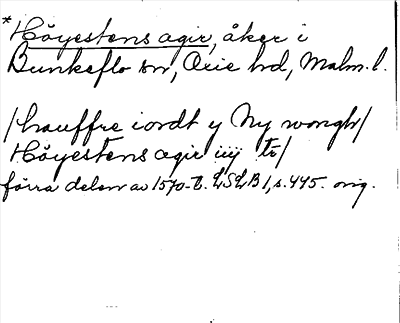 * Höyestens agir, åker i
Bunkeflo sn, Oxie hd, Malm. l.
/hauffre iordt y Ny wongh/
Höyestens agir iiij tr/
förra delen av 1570-t. LSLB 1, s. 445. orig.